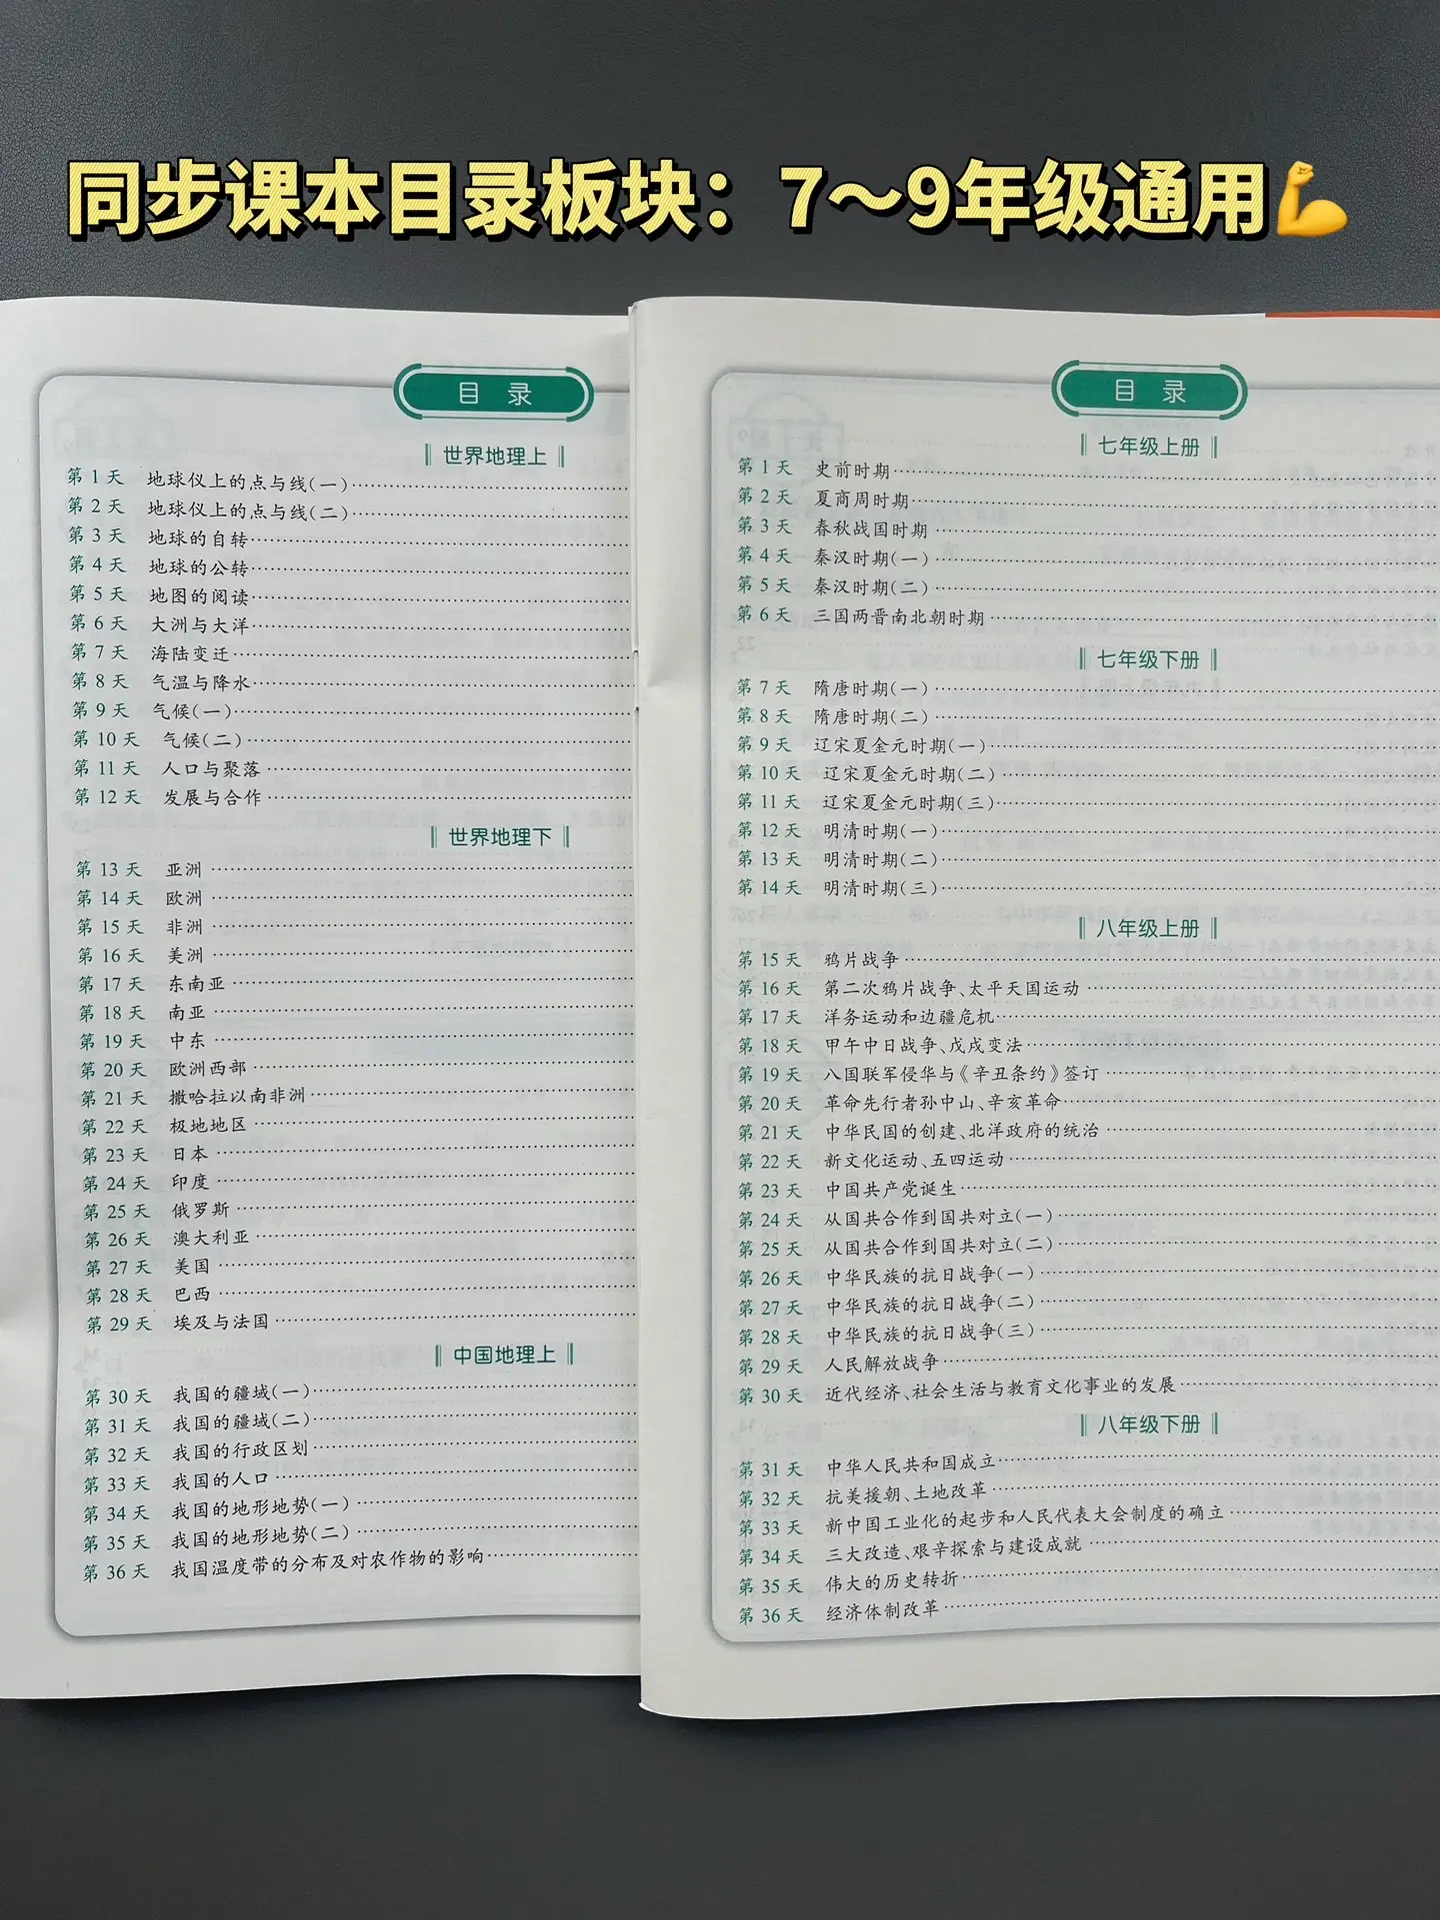 同步课本目录板块：7～9年级通用💪
目录
世界地理上
第1天 地球仪上的点与线(一)
第2天 地球仪上的点与线(二)
第3天 地球的自转
第4天 地球的公转
第5天 地图的阅读
第6天 大洲与大洋
第7天 海陆变迁
第8天 气温与降水
第9天 气候(一)
第10天 气候(二)
第11天 人口与聚落
第12天 发展与合作
世界地理下
第13天 亚洲
第14天 欧洲
第15天 非洲
第16天 美洲
第17天 东南亚
第18天 南亚
第19天 中东
第20天 欧洲西部
第21天 撒哈拉以南非洲
第22天 极地地区
第23天 日本
第24天 印度
第25天 俄罗斯
第26天 澳大利亚
第27天 美国
第28天 巴西
第29天 埃及与法国
中国地理上
第30天 我国的疆域(一)
第31天 我国的疆域(二)
第32天 我国的行政区划
第33天 我国的人口
第34天 我国的地形地势(一)
第35天 我国的地形地势(二)
第36天 我国温度带的分布及对农作物的影响
目录
七年级上册
第1天 史前时期
第2天 夏商周时期
第3天 春秋战国时期
第4天 秦汉时期(一)
第5天 秦汉时期(二)
第6天 三国两晋南北朝时期
七年级下册
第7天 隋唐时期(一)
第8天 隋唐时期(二)
第9天 辽宋夏金元时期(一)
第10天 辽宋夏金元时期(二)
第11天 辽宋夏金元时期(三)
第12天 明清时期(一)
第13天 明清时期(二)
第14天 明清时期(三)
八年级上册
第15天 鸦片战争
第16天 第二次鸦片战争、太平天国运动
第17天 洋务运动和边疆危机
第18天 甲午中日战争、戊戌变法
第19天 八国联军侵华与《辛丑条约》签订
第20天 革命先行者孙中山、辛亥革命
第21天 中华民国的创建、北洋政府的统治
第22天 新文化运动、五四运动
第23天 中国共产党诞生
第24天 从国共合作到国共对立(一)
第25天 从国共合作到国共对立(二)
第26天 中华民族的抗日战争(一)
第27天 中华民族的抗日战争(二)
第28天 中华民族的抗日战争(三)
第29天 人民解放战争
第30天 近代经济、社会生活与教育文化事业的发展
八年级下册
第31天 中华人民共和国成立
第32天 抗美援朝、土地改革
第33天 新中国工业化的起步和人民代表大会制度的确立
第34天 三大改造、艰辛探索与建设成就
第35天 伟大的历史转折
第36天 经济体制改革